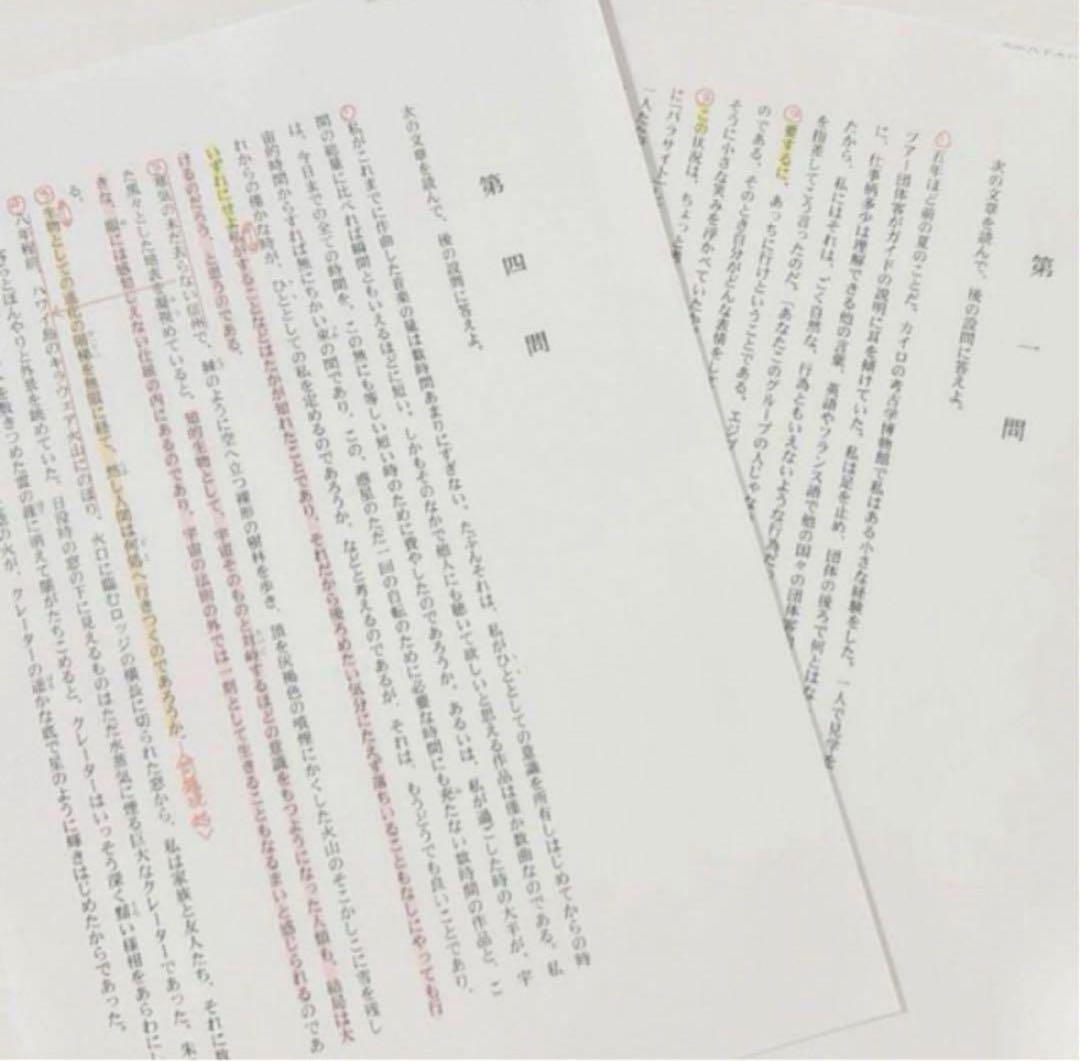 第一問
次の文章を読んで、後の設問に答えよ。
① 五年ほど前の夏のことだ。カイロの考古学博物館で私はある小さな経験をした。一人で見学を
ツアー団体客がガイドの説明に耳を傾けていた。私は足を止め、団体の後ろで何とはな
に、仕事柄多少は理解できる他の言葉、英語やフランス語で他の国々の団体客
だから、私にはそれは、ごく自然な、行為ともいえないような行為だ
を指差してこう言ったのだ。「あなたこのグループの人じゃな
② 要するに、あっちに行けということである。エジプ
のである。そのとき自分がどんな表情をし
そうに小さな笑みを浮かべていた
③ この状況は、ちょっと
に「パラサイト
一人だ
第四問
次の文章を読んで、後の設問に答えよ。
① 私がこれまでに作曲した音楽の量は数時間あまりにすぎない。たぶんそれは、私がひととしての意識を所有しはじめてからの時
間の総量に比べれば瞬間ともいえるほどに短い。しかもそのなかで他人にも聴いて欲しいと思える作品は僅か数曲なのである。私
は、今日までの全ての時間を、この無にも等しい短い時のために費やしたのであろうか。あるいは、私が過ごした時の大半が、宇
宙的時間からすれば無にちかい束の間であり、この、惑星のただ一回の自転のために必要な時間にも充たない数時間の作品と、こ
れからの僅かな時が、ひととしての私を定めるのであろうか、などと考えるのであるが、それは、もうどうでも良いことであり、
いずれにせよ私がすることなどはたかが知れたことであり、それだから後ろめたい気分にたえず落ちいることもなしにやっても行
けるのだろう、と思うのである。
② 寒気の未だ去らない信州で、棘のように空へ立つ裸形の樹林を歩き、頂を灰褐色の噴煙にかくした火山のそこかしこに雪を残し
た黒々とした地表を凝視めていると、知的生物として、宇宙そのものと対峙するほどの意識をもつようになった人類も、結局は大
きな、眼には感知しえない仕組の内にあるのであり、宇宙の法則の外では一刻として生きることもなるまいと感じられるのであ
る。
③ 生物としての進化の階梯を無限に経て、然し人間は何処へ行きつくのであろうか。
④ 八年程前、ハワイ島のキラウエア火山にのぼり、火口に臨むロッジの横長に切られた窓から、私は家族と友人たち、それに
ぼんやりと外景を眺めていた。日没時の窓の下に見えるものはただ水蒸気に煙る巨大なクレーターであった。朱
敷きつめた雲の涯に消えて闇がたちこめると、クレーターはいっそう深く黯い様相をあらわにし
の火が、クレーターの遥かな底で星のように輝きはじめたからであった。